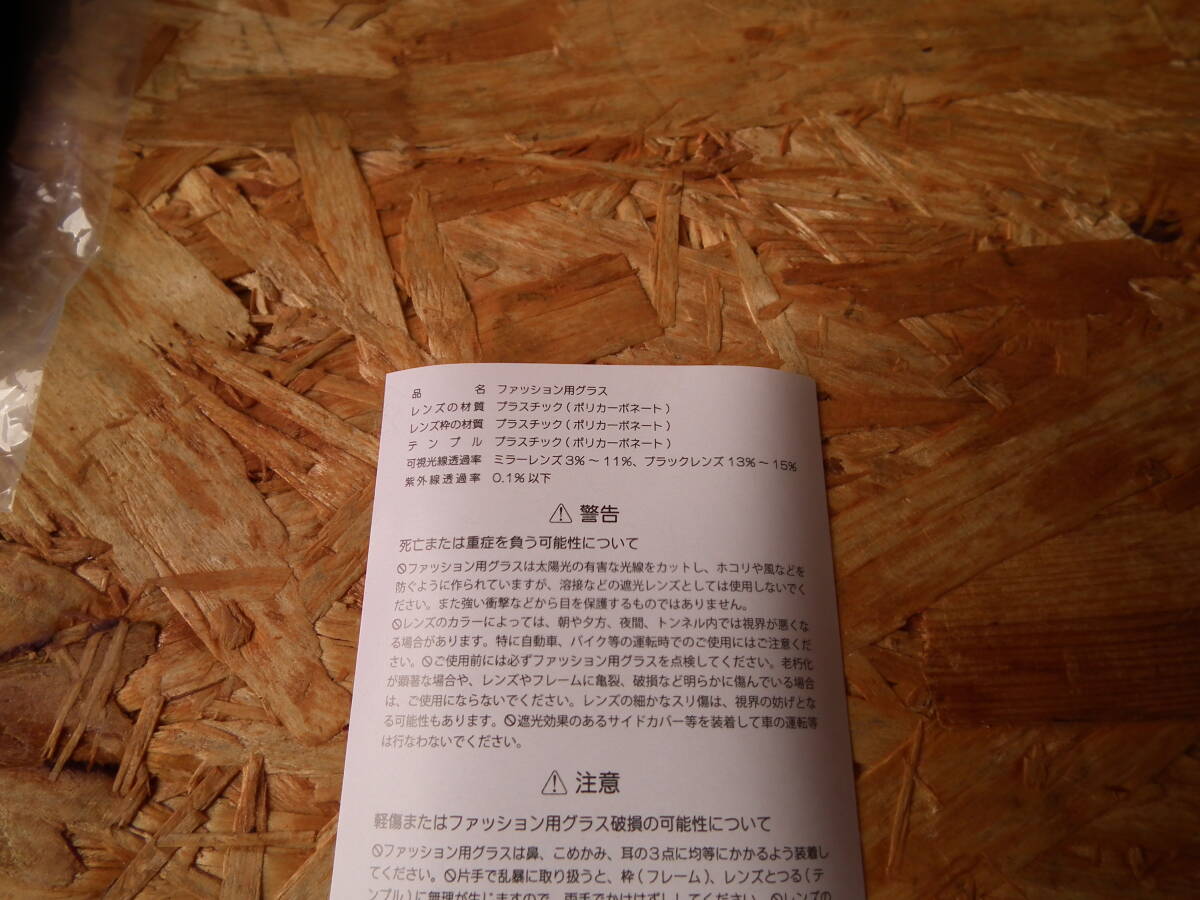 品名 ファッション用グラス
レンズの材質 プラスチック(ポリカーボネート)
レンズ枠の材質 プラスチック(ポリカーボネート)
テンプル プラスチック(ポリカーボネート)
可視光線透過率 ミラーレンズ3%～11%、ブラックレンズ13%～15%
紫外線透過率 0.1%以下
⚠ 警告
死亡または重症を負う可能性について
🛇ファッション用グラスは太陽光の有害な光線をカットし、ホコリや風などを
防ぐように作られていますが、溶接などの遮光レンズとしては使用しないでく
ださい。また強い衝撃などから目を保護するものではありません。
🛇レンズのカラーによっては、朝や夕方、夜間、トンネル内では視界が悪くな
る場合があります。特に自動車、バイク等の運転時でのご使用にはご注意くだ
さい。🛇ご使用前には必ずファッション用グラスを点検してください。老朽化
が顕著な場合や、レンズやフレームに亀裂、破損など明らかに傷んでいる場合
は、ご使用にならないでください。レンズの細かなスリ傷は、視界の妨げとな
る可能性もあります。🛇遮光効果のあるサイドカバー等を装着して車の運転等
は行なわないでください。
⚠ 注意
軽傷またはファッション用グラス破損の可能性について
🛇ファッション用グラスは鼻、こめかみ、耳の3点に均等にかかるよう装着し
てください。🛇片手で乱暴に取り扱うと、枠(フレーム)、レンズとつる(テ
ンプル)に無理が生じますので、両手でかけはずししてください。🛇レンズの